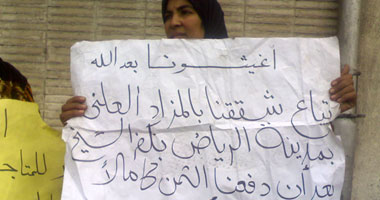 أغيثونا بعد الله
تباع شققنا بالمزاد العلنى
بمدينة الرياض بكفر الشيخ
بعد أن دفعنا الثمن كاملاً
للمتاجر